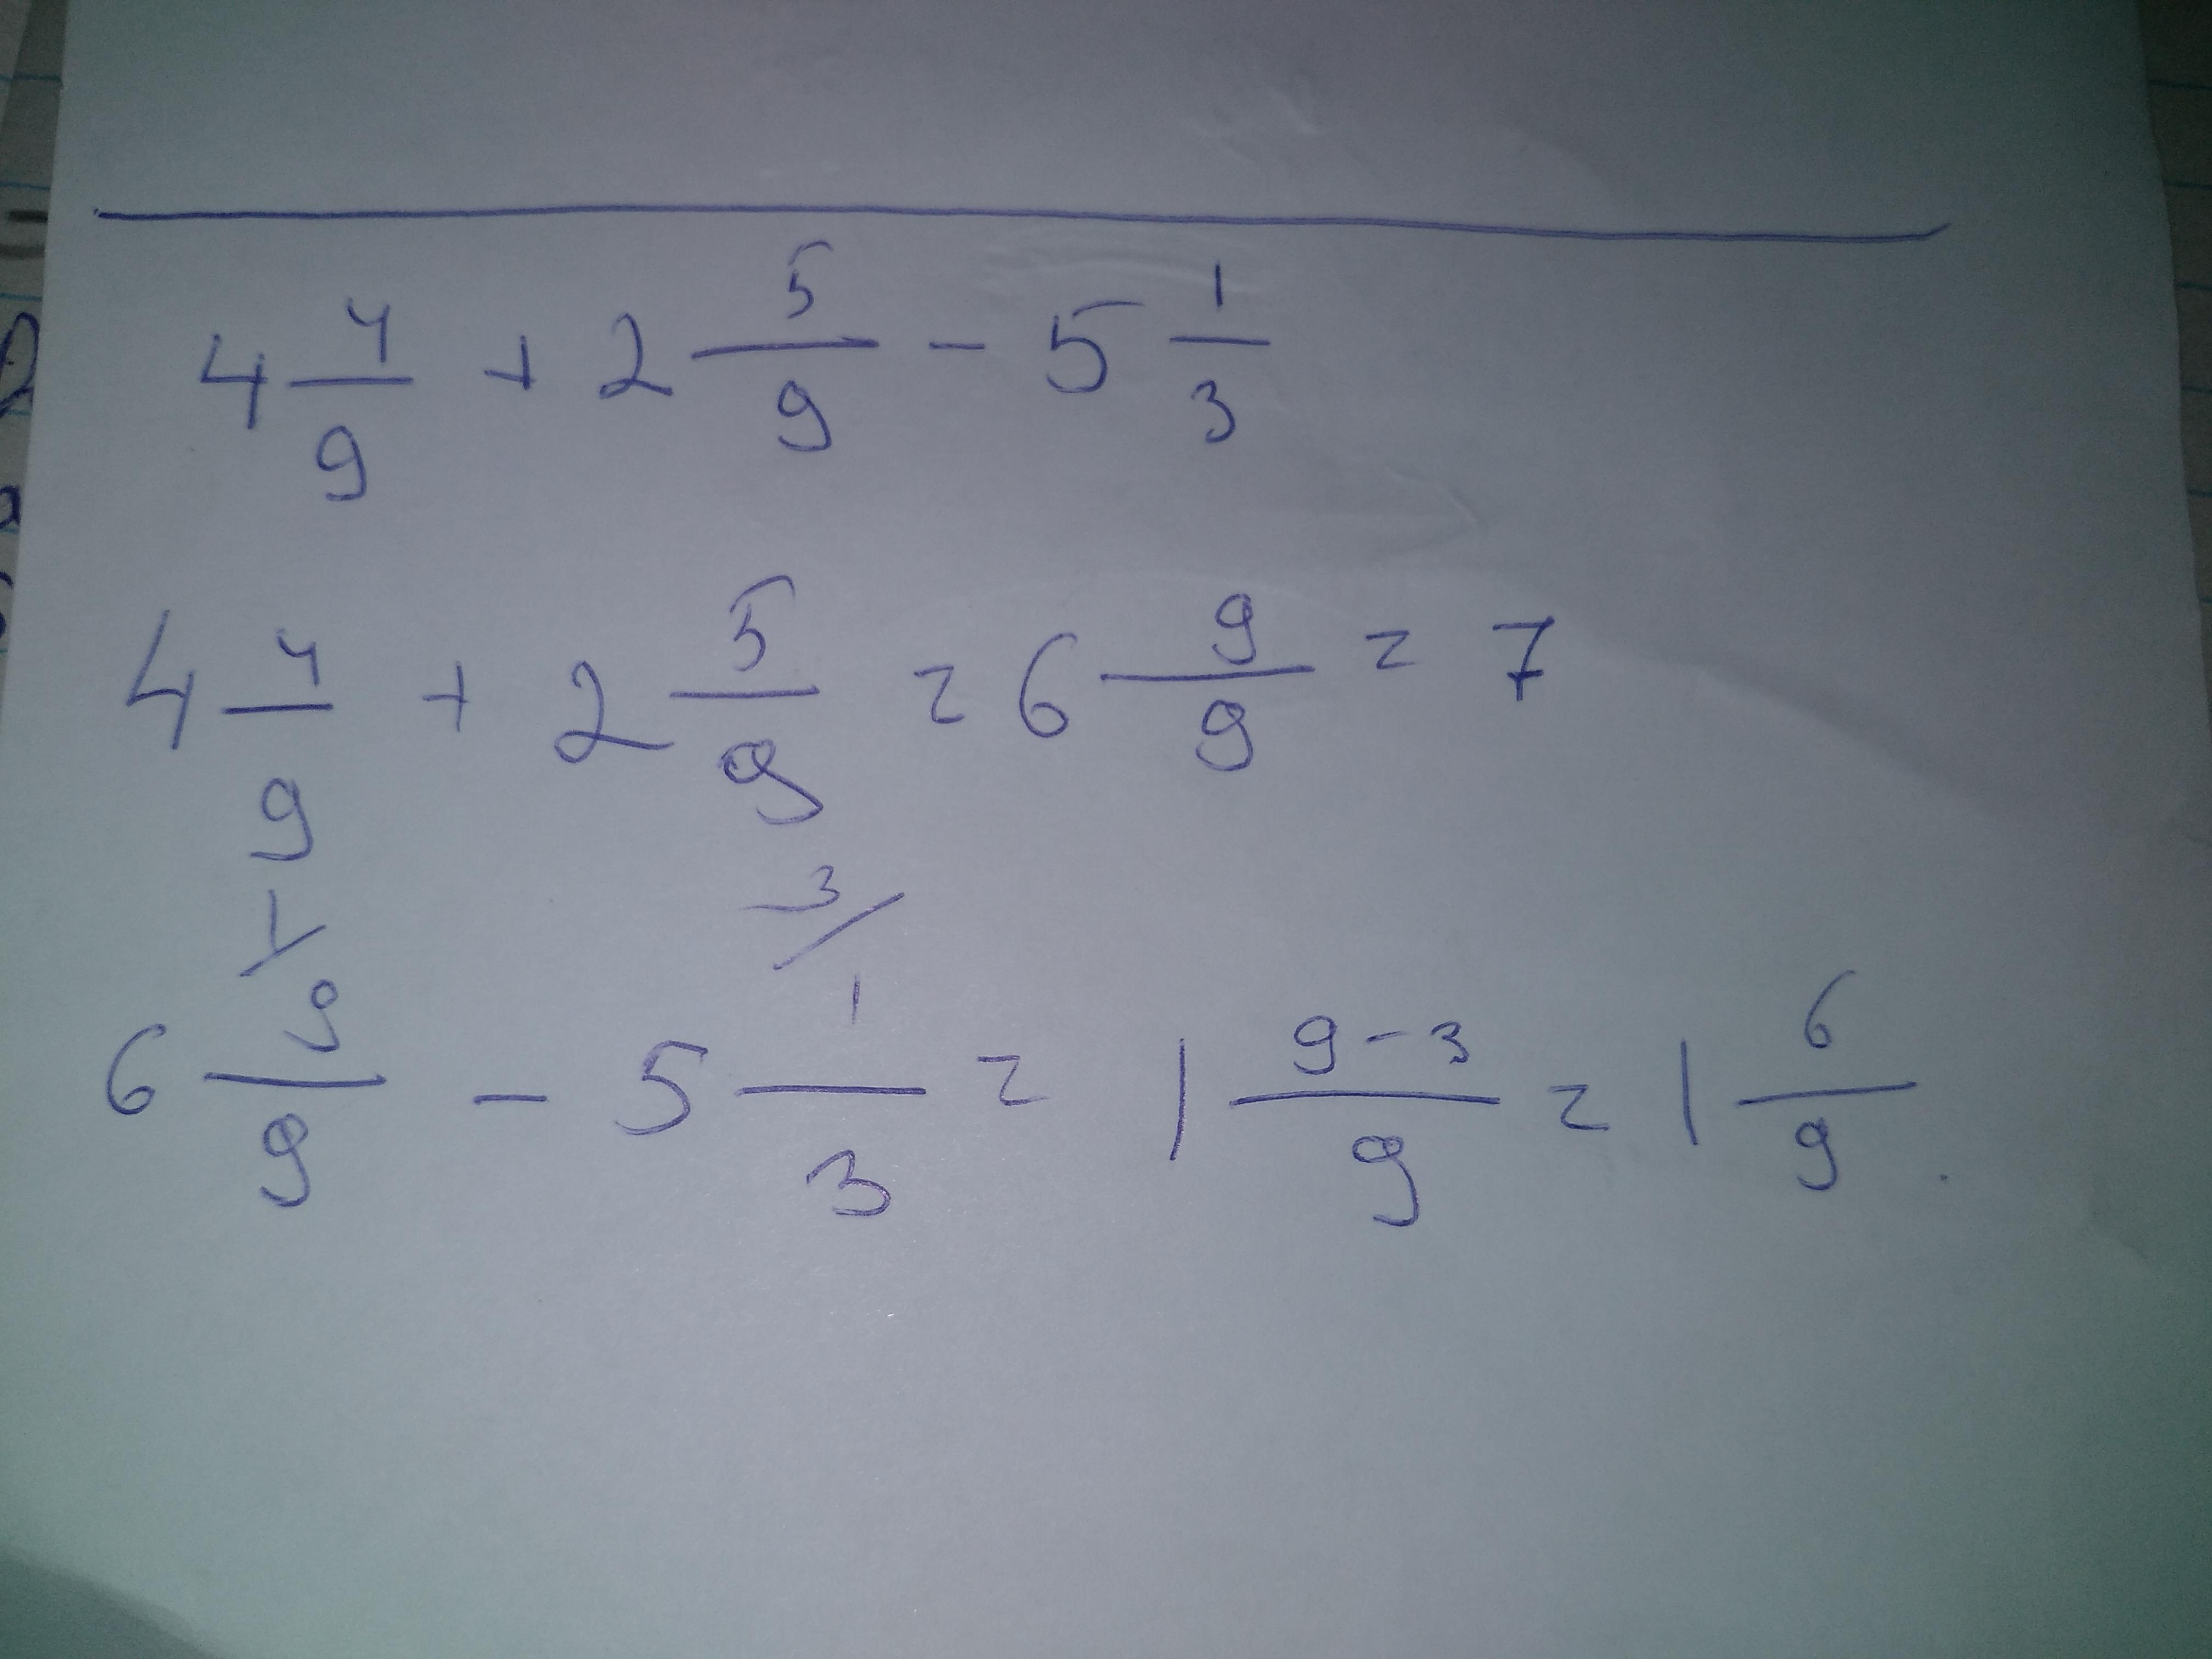 4 4/9 + 2 5/9 - 5 1/3
4 4/9 + 2 5/9 = 6 9/9 = 7
1/ 3/
6 9/9 - 5 1/3 = 1 9-3/9 = 1 6/9.